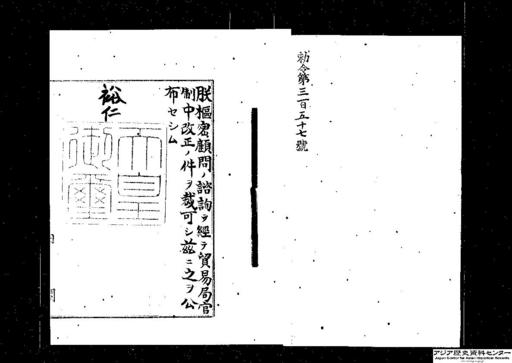 勅令第三百五十七號
朕樞密顧問ノ諮詢ヲ經テ貿易局官
制中改正ノ件ヲ裁可シ茲ニ之ヲ公
布セシム
裕仁
天皇
御璽
アジア歴史資料センター
Japan Center for Asian Historical Records